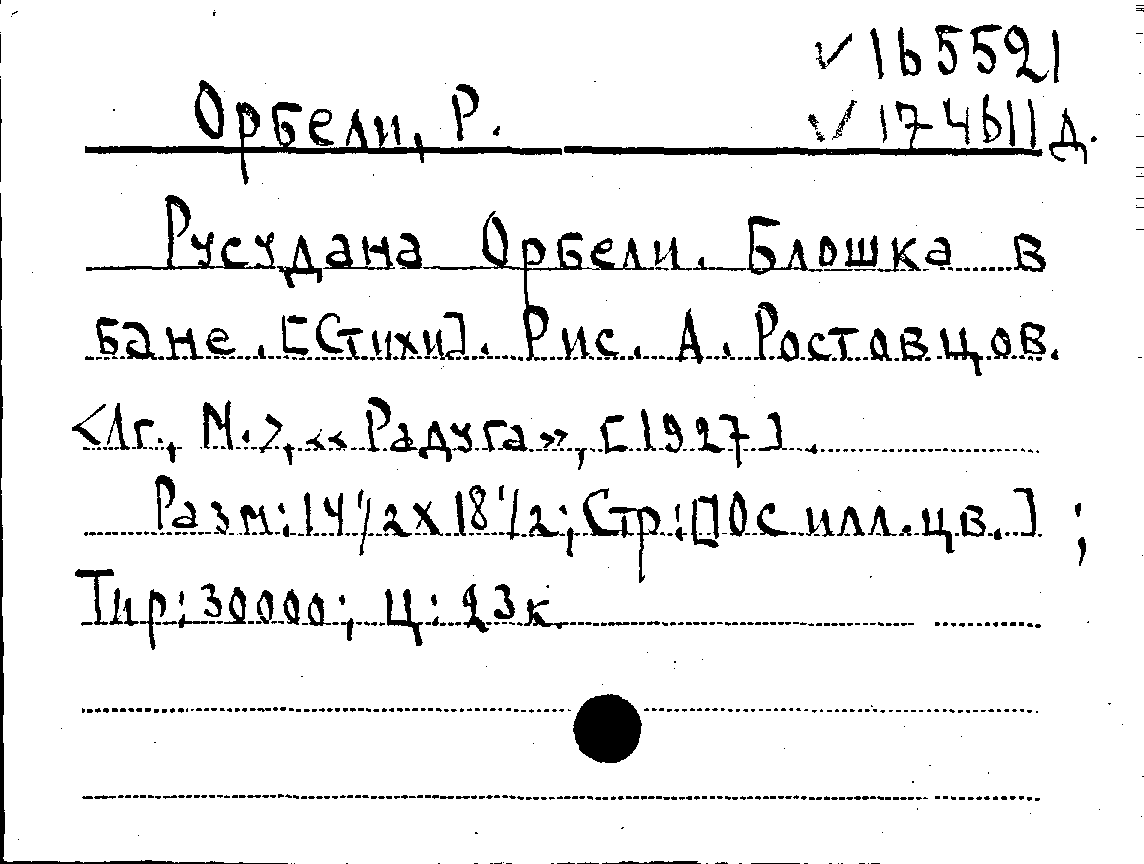 ✓165521
✓174611д.
Орбели, Р.
Русудана Орбели. Блошка в
бане. [Стихи]. Рис. А. Ростовцов.
<Лг., М.>, «Радуга», [1927].
Разм: 14 1/2 х 18 1/2; Стр: [10с илл. цв.] ;
Тир: 30000; Ц: 23к.